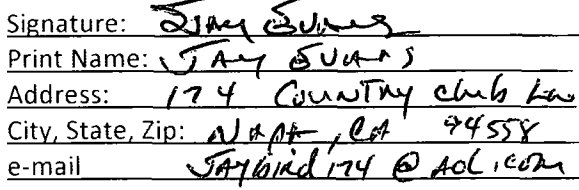 Signature: Jay Evans
Print Name: JAY EVANS
Address: 174 Country club Ln
City, State, Zip: NAPA, CA 94558
e-mail JAYbird174 @ AOL.COM